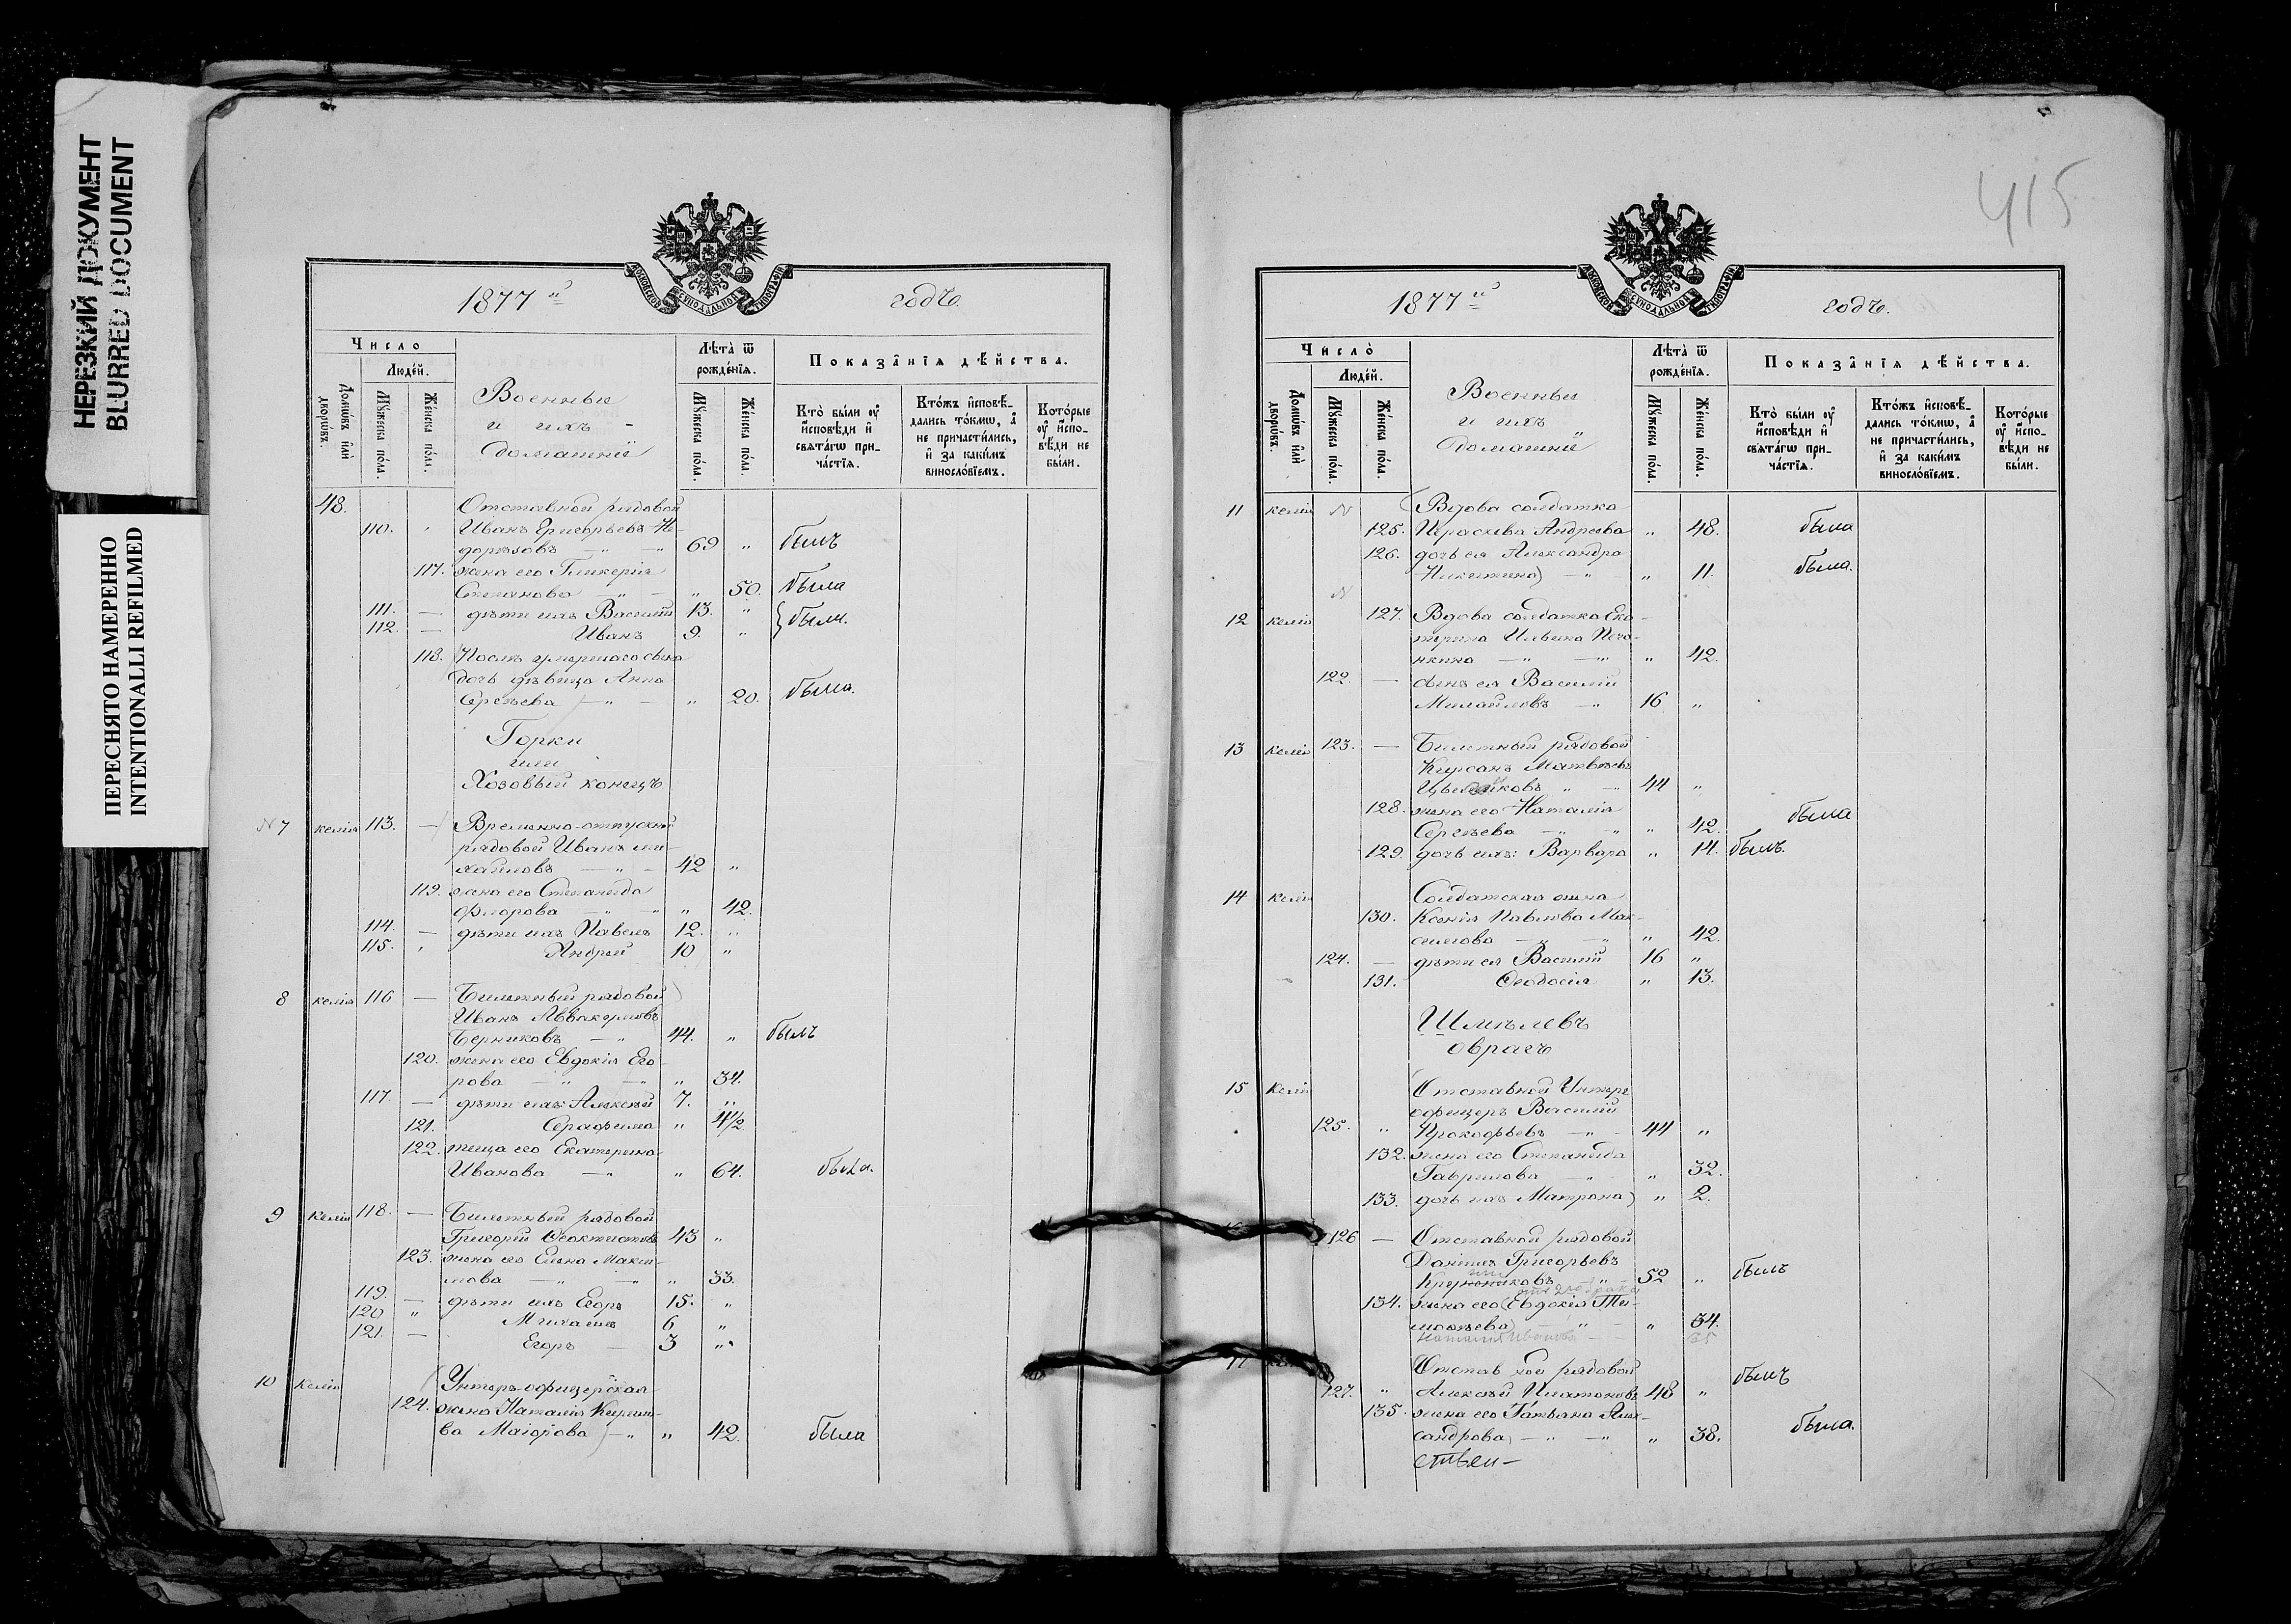 НЕРЕЗКИЙ ДОКУМЕНТ
BLURRED DOCUMENT
ПЕРЕСНЯТО НАМЕРЕННО
INTENTIONALLI REFILMED
МОСКОВСКОЙ СѴНОДАЛЬНОЙ ТИПОГРАФІИ
1877 й годъ.
Число
Людей.
Домѡвъ или дворѡвъ.
Мꙋжеска пола.
Женска пола.
Военные
и ихъ
домашніе
Лѣта ѿ рожденїя.
Мꙋжеска пола.
Женска пола.
Показанїя дѣйства.
Кто были оу исповѣди и свѧтагѡ причастїѧ.
Ктожъ исповѣдались токмѡ, а не причастились, и за какимъ винословїемъ.
Которые оу исповѣди не были.
48. Отставной рядовой
110. Иванъ Григорьевъ
69 „ былъ
117. жена его Гликерія
Степанова „ 50. была
111. — дѣти ихъ Василій 13. „
112. — Иванъ 9. „ были.
118. Послѣ умершаго сына
дочь дѣвица Анна
Сергѣева „ 20. была.
Горки
или
Хозовый конецъ
N 7 келія 113. — Временно-отпускной
рядовой Иванъ Ми-
хайловъ 42 „
119. жена его Степанида
Флорова „ 42.
114. — дѣти ихъ Павелъ 12. „
115. „ Андрей 10 „
8 келія 116 — Билетный рядовой
Иванъ Аввакумовъ
Берниковъ 44. „ былъ
120. жена его Евдокія Его-
рова „ 34.
117. — дѣти ихъ: Алексѣй 7. „
121. Серафима „ 4½
122. теща его Екатерина
Иванова „ 64. была.
9 келія 118. — Билетный рядовой
Григорій Ѳеоктистовъ 43 „
123. жена его Елена Макси-
мова „ 33.
119. — дѣти ихъ Егоръ 15. „
120 „ Михаилъ 6 „
121. — Егоръ 3 „
10 келія Унтеръ-офицерская
124. жена Наталія
Маіорова „ 42. была
415
МОСКОВСКОЙ СѴНОДАЛЬНОЙ ТИПОГРАФІИ
1877 й годъ.
Число
Людей.
Домѡвъ или дворѡвъ.
Мꙋжеска пола.
Женска пола.
Военные
и ихъ
домашніе
Лѣта ѿ рожденїя.
Мꙋжеска пола.
Женска пола.
Показанїя дѣйства.
Кто были оу исповѣди и свѧтагѡ причастїѧ.
Ктожъ исповѣдались токмѡ, а не причастились, и за какимъ винословїемъ.
Которые оу исповѣди не были.
11 келія N Вдова солдатка
125. Параскева Андреева „ 48. была
126. дочь ея Александра
Никитина „ 11. была.
N
12 келія 127. Вдова солдатка Ека-
терина Ильина
„ 42.
122. — сынъ ея Василій
Михайловъ 16 „
13 келія 123. — Билетный рядовой
Кирсанъ Матвѣевъ
44 „
128. жена его Наталія
Сергѣева „ 42. была
129. дочь ихъ: Варвара „ 14. былъ.
14 келія Солдатская жена
130. Ксенія Павлова Мак-
симова „ 42.
124. — дѣти ея Василій 16 „
131. Ѳеодосія „ 13.
Шмелевъ
оврагъ
15 келія Отставной Унтеръ
офицеръ Василій
125. „ Прокофьевъ 44 „
132. жена его Степанида
Гаврилова „ 32.
133. дочь ихъ Матрона „ 2.
126 — Отставной рядовой
Даніилъ Григорьевъ
52 „ былъ
134. жена его (Евдокія Ти-
моѳеева) „ 34.
Наталия Иванова 35
17 Отставной рядовой
127. „ Алексѣй Платоновъ 48 „ былъ
135. жена его Татьяна Алек-
сандрова „ 38. была.